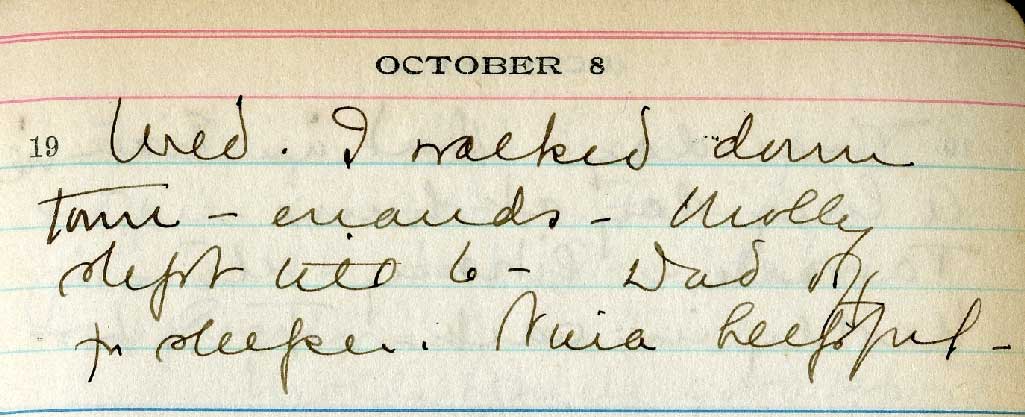 OCTOBER 8
19 Wed. I walked down
town - errands - Molly
slept till 6 - Dad off
for sleeper. Nina helpful -